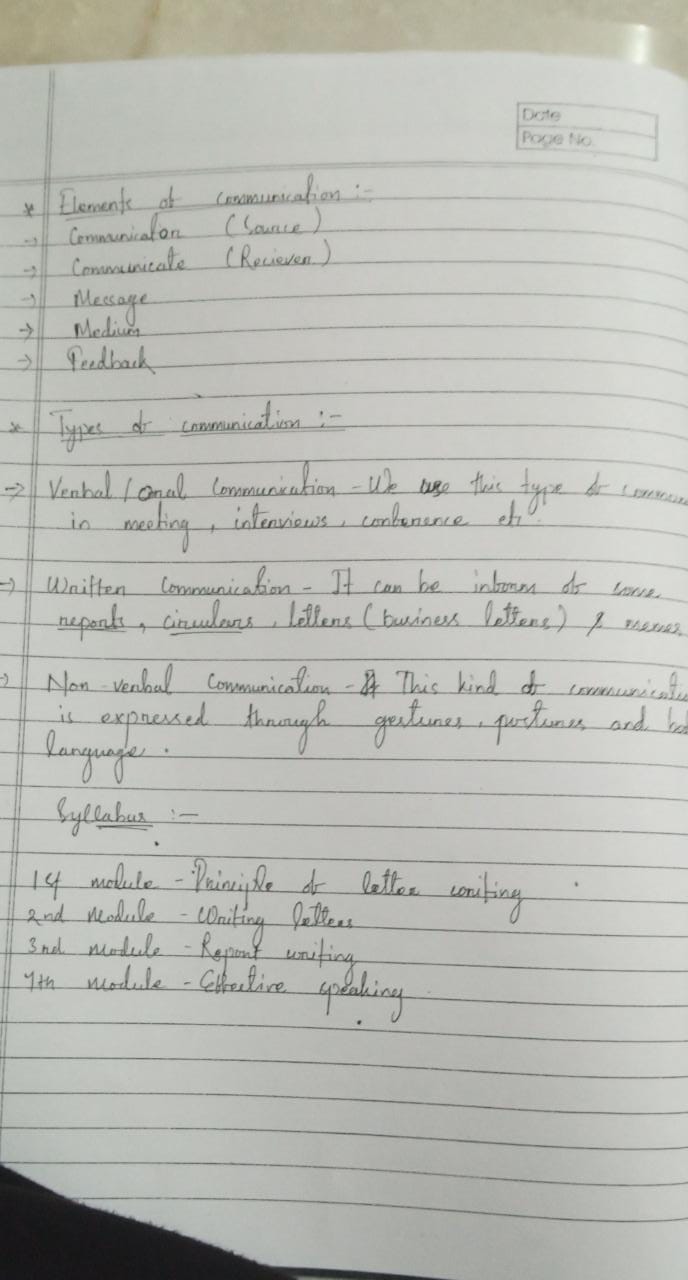 Date
Page No.
* Elements of communication :-
→ Communicator (Source)
→ Communicate (Reciever)
→ Message
→ Medium
→ Feedback
* Types of communication :-
→ Verbal / oral Communication - We use this type of commun
in meeting, interviews, conference etc.
→ Written Communication - It can be inform of some
reports, circulars, letters (business letters) & memos
→ Non-verbal Communication - This kind of communicati
is expressed through gestures, postures and bo
language.
Syllabus :-
1st module - Principle of letter writing
2nd Module - Writing letters
3rd module - Report writing
4th module - Effective speaking